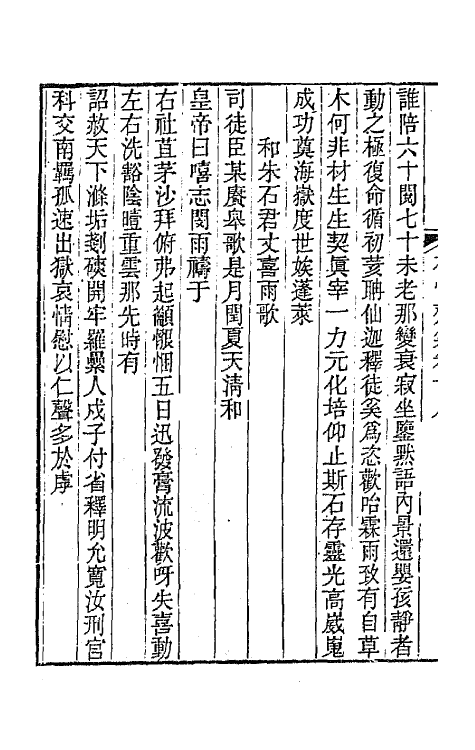 誰陪六十閱七十未老那變衰寂坐鑒默語內景還嬰孩靜者
動之極復命循初荄聃仙迦釋徒奚爲恣歡咍霖雨致有自草
木何非材生生契眞宰一力元化培仰止斯石存靈光高嵗嵬
成功奠海嶽度世娭蓬萊
和朱石君丈喜雨歌
司徒臣某賡皋歌是月閏夏天淸和
皇帝曰嘻志閔雨禱于
右社苴茅沙拜俯弗起籲懷悃五日迅發膏流波歡呀失喜動
左右洗豁陰曀重雲那先時有
詔赦天下滌垢剗磢開牢羅纍人戍子付省釋明允寬汝刑官
科交南羈孤速出獄哀情慰以仁聲多於虖